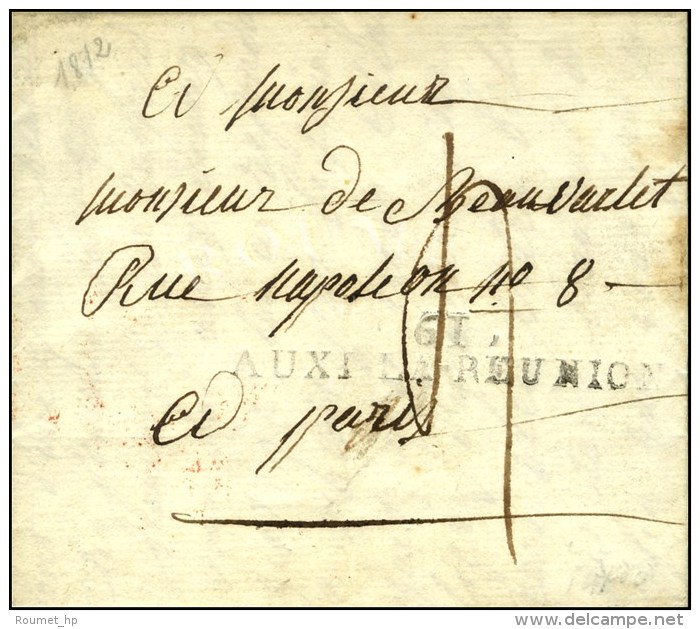 1812
A monsieur
monsieur de Beauvarlet
Rue napoleon no 8
61
AUXI-LA-REUNION
A paris
Roumet_hp
delcampe.net